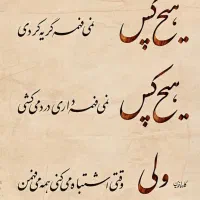 هیچ کس نمی فهمه گریه کردی
هیچ کس نمی فهمه داری درد می کشی
ولی وقتی اشتباه می کنی همه می فهمن